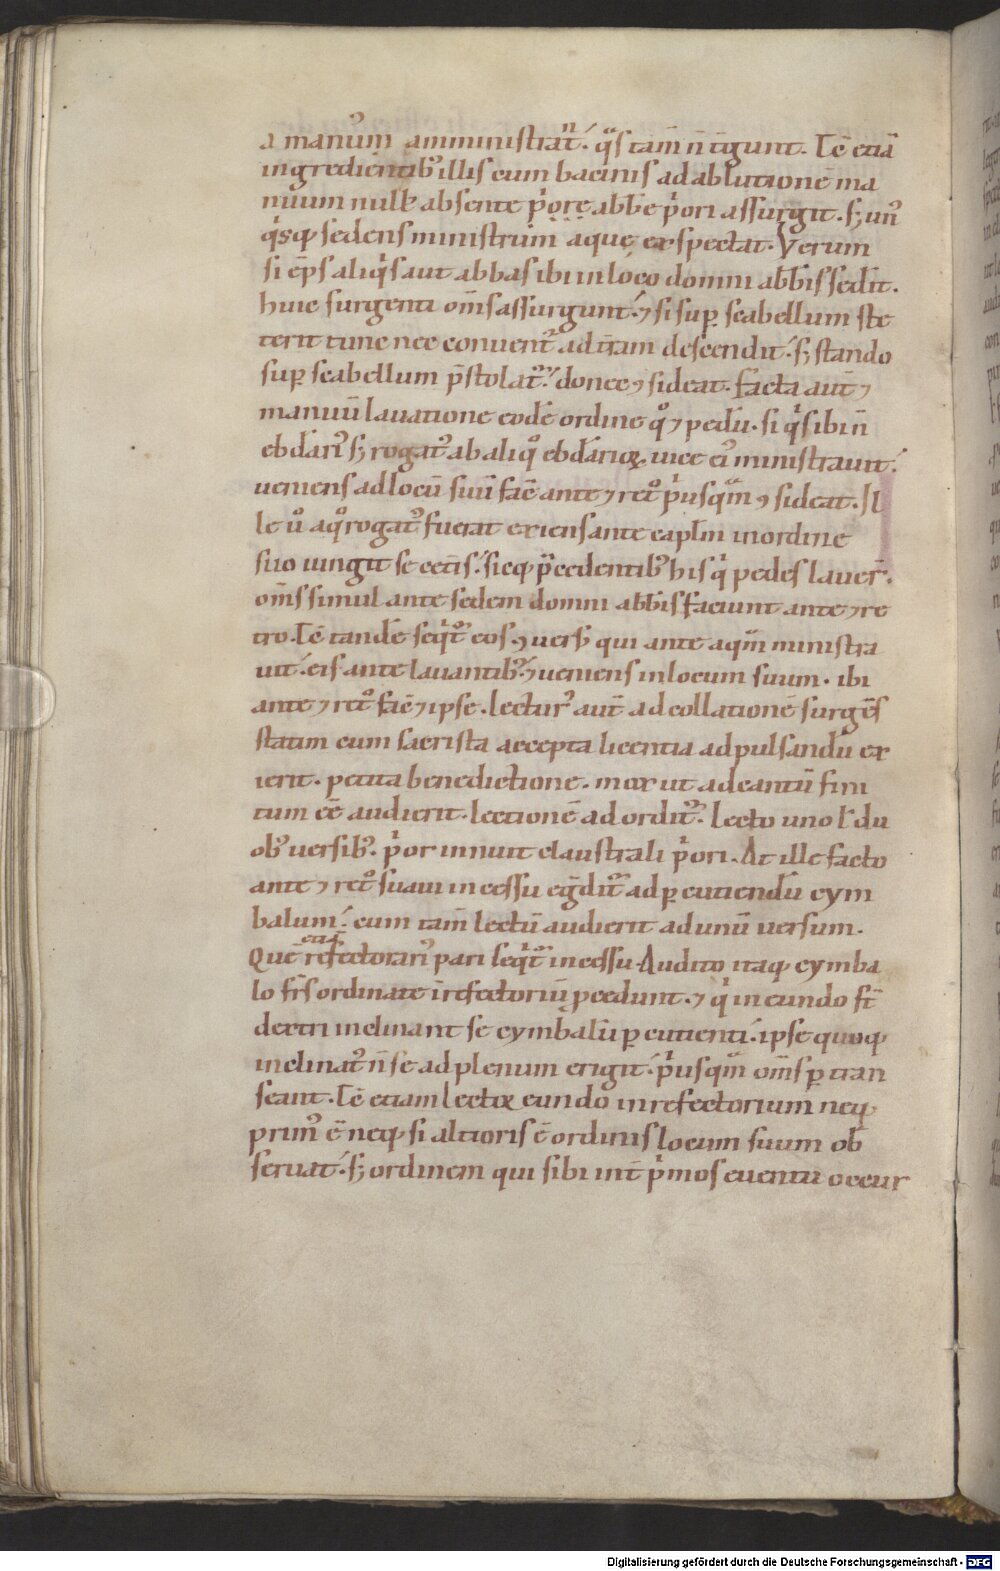 a manuum amministrat᷑. q̇s tam̄ n̄ tḡunt. Tc̄ etiā
ingredientib᷒ illis cum bacinis ad ablutionē ma
nuum null᷒ absente p̓ore abb̄e p̓ori assurgit. s; un᷒
q̓sq; sedens ministrum aquę exspectat. Verum
si ep̄s aliq̓s aut abbas ibi in loco domni abb̄is sedit.
huic surgenti om̄s assurgunt. ⁊ si sup̱ scabellum ste
terit tunc nec conuent᷒ ad t̄ram descendit. s; stando
sup̱ scabellum p̄stolat᷑. donec ꝯsideat. facta aut̄ ⁊
manuū lauatione eodē ordine q̊ ⁊ pedū. si q̓s ibi n̄
ebdāri᷒ s; rogat᷒ ab aliq̊ ebdārioꝝ uice ei᷒ ministrauit.
ueniens ad locū suū fac̄ ante ⁊ ret° p̓usqᷓm ꝯsideat. Il
le ů a q̊ rogat᷒ fuerat exiens ante cap̄lm in ordine
suo iungit se cet̄is. sicq; p̄cedentib᷒ his q̓ pedes lauer̄.
om̄s simul ante sedem domni abb̄is faciunt ante ⁊ re
tro. Tc̄ tandē seq̇t᷑ eos ꝯuers᷒ qui ante aqᷓm ministra
uit. eis ante lauantib᷒. ⁊ ueniens in locum suum. ibi
ante ⁊ ret° fac̄ ⁊ ipse. Lectur᷒ aut̄ ad collationē surgēs
statim cum sacrista accepta licentia ad pulsandū ex
ierit. petita benedictione. mox ut adeantū fini
tum eē audierit. lectionē ad ordit᷑. Lecto uno l̓ du
ob᷒ uersib᷒. p̓or innuit claustrali p̓ori. At ille facto
ante ⁊ ret° suaui incessu eḡdit᷑ ad p̱cutiendū cym
balum. cum tam̄ lectū audierit ad unū uersum.
Quē etiā refectorari᷒ pari seq̇t᷑ incessu. Audito itaq; cymba
lo fr̄s ordinate ī refectoriū p̄cedunt. ⁊ q̓ in eundo s̄t
dextri inclinant se cymbalū p̱cutienti. ipse quoq;
inclinat᷒ n̄ se ad plenum erigit. p̓usqᷓm om̄s p̱tran
seant. Tc̄ etiam lectoꝝ eundo in refectorium neq;
prim᷒ ē neq; si altioris ē ordinis locum suum ob
seruat. s; ordinem qui sibi int̄ p̓mos euentu occur
Digitalisierung gefördert durch die Deutsche Forschungsgemeinschaft - DFG